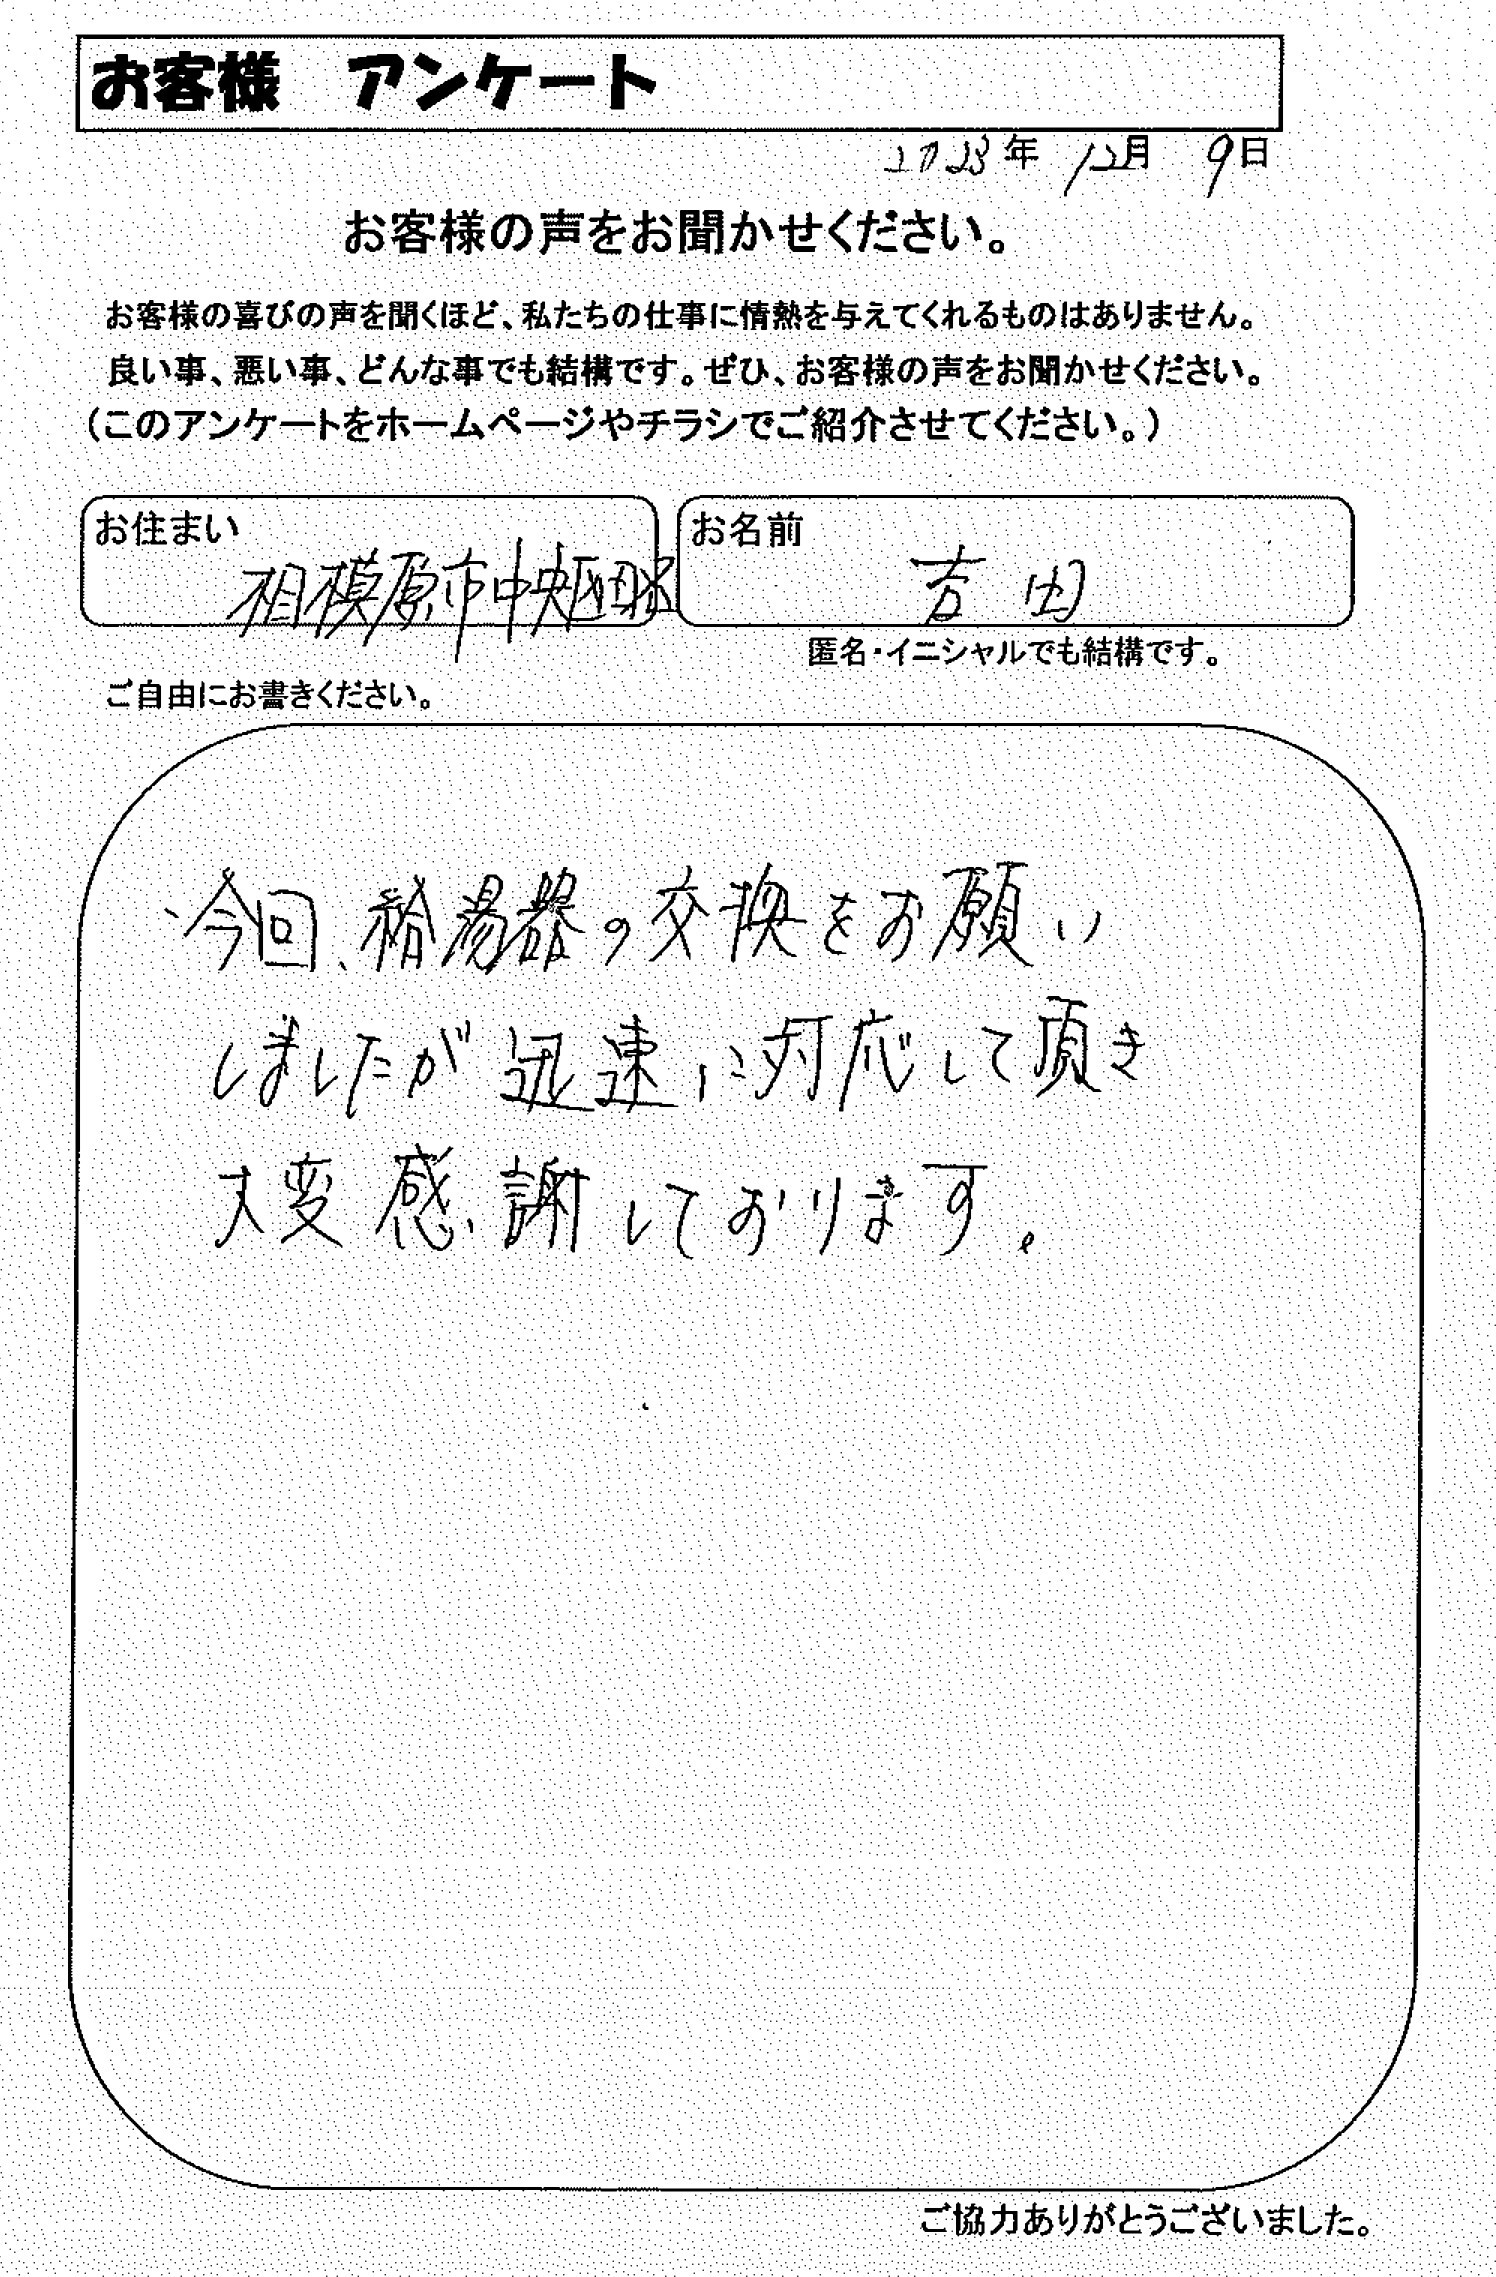 お客様 アンケート
2023年 12月 9日
お客様の声をお聞かせください。
お客様の喜びの声を聞くほど、私たちの仕事に情熱を与えてくれるものはありません。
良い事、悪い事、どんな事でも結構です。ぜひ、お客様の声をお聞かせください。
(このアンケートをホームページやチラシでご紹介させてください。)
お住まい
相模原市中央区
お名前
吉田
匿名・イニシャルでも結構です。
ご自由にお書きください。
、今回、給湯器の交換をお願い
しましたが迅速に対応して頂き
大変感謝しております。
ご協力ありがとうございました。